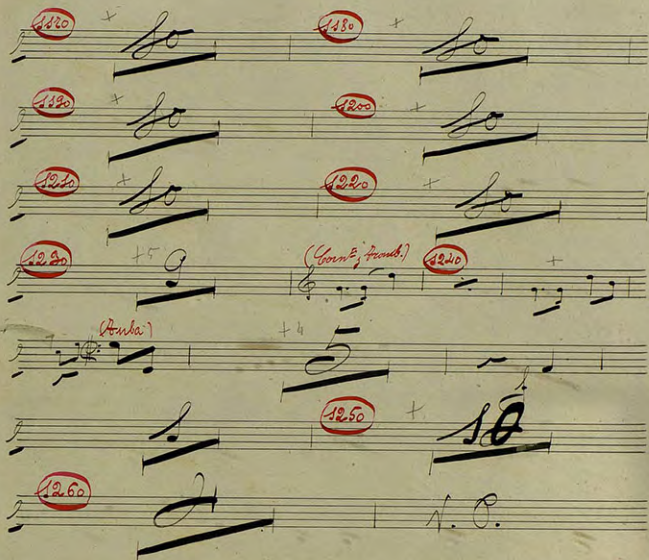 1170 + 10 1180 + 10
1190 + 10 1200 + 10
1210 + 10 1220 + 10
1230 +5 9 (Corn.ti, Tromb.) 1240 +
(Tuba) +4 5
1 1250 + 10
1260 2 V. O.